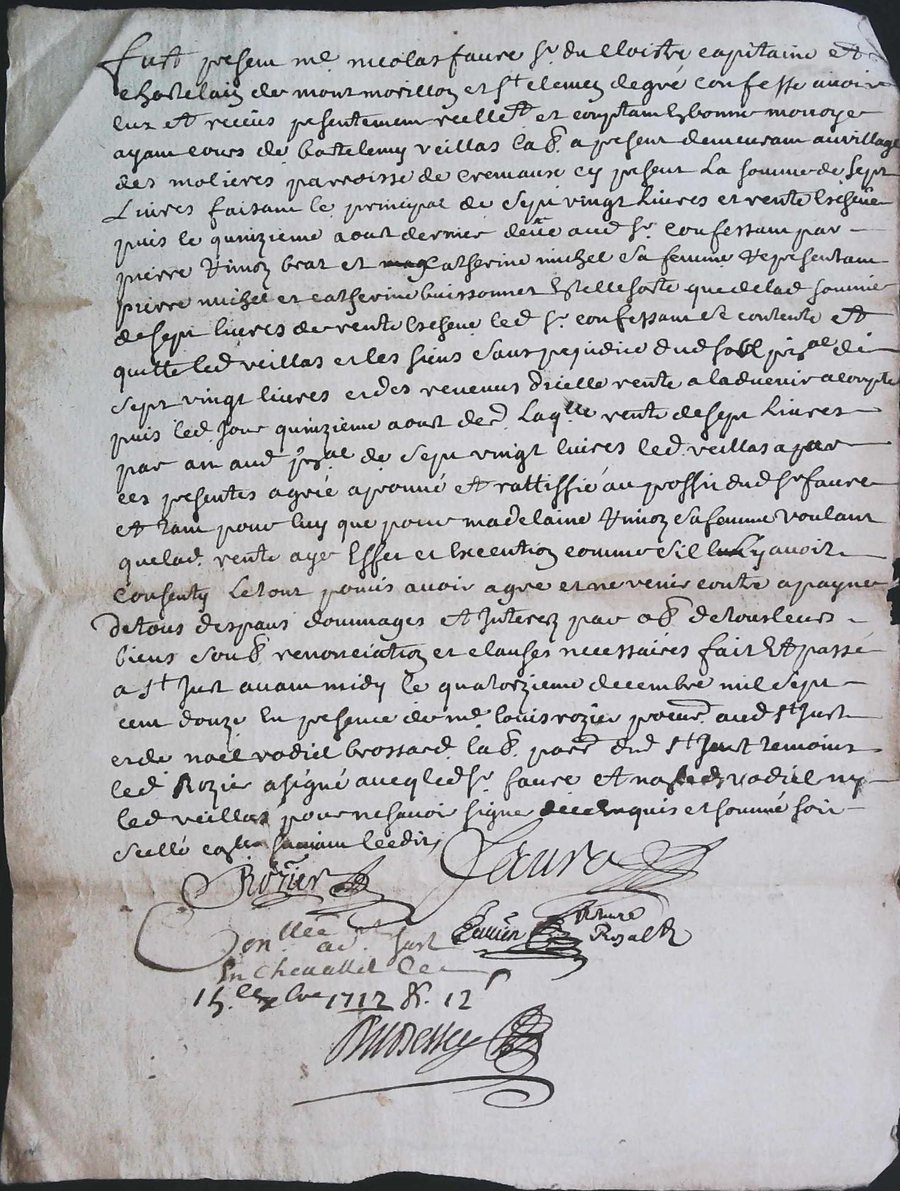 fust present me nicolas faure sr du cloistre capitaine et
chastelain de montmorillon et st clemen de gré confesse avoir
heu et receus presentement reellemt et comptant en bonne monoye
ayant cours de bartelemy veillas lab. a present demeurant au village
des molieres parroisse de cremaux cy present la somme de sept
Livres faisant le principal de sept vingt livres et rente escheüe
puis le quinzieme aoust dernier deüe aud sr confessant par
pierre et catherine michel sa femme representant
pierre michel et catherine buissonnet telle sorte que de lad somme
de sept livres de rente escheue led sr confessant s'est contente et
quitte led veillas et les siens sans prejudice dud sort pnal de
sept vingt livres et des revenus d'icelle rente a ladvenir a compter
puis led jour quinzieme aoust der Laqlle rente de sept Livres
par an aud pnal de sept vingt livres led veillas a par
ces presentes agrée aprouvé et rattiffié au proffit dud sr faure
et tant pour luy que pour madelaine sa femme voulant
que lad. rente aye Effet et Execution comme s'il y avoit
consenty Le tout promis avoir agre et ne venir contre a payne
de tous despans dommages et Interez par ob. de tous leurs
biens soub. renonciation et clauses necessaires fait Et passé
a st Just avant midy le quatorzieme decembre mil sept
cent douze En presence de me louis rozier procur. aud st Just
et de noel vadiel brossard lab. parr. dud st Just temoins
led Rozier a signé avecq led sr faure et non led vadiel ny
led veillas pour ne scavoir signer de ce enquis et sommé soit
scellé leedit
Rozier Faure
Conllé a st Just Royal
En chevallet le
15. le xbre 1712 R. 12s